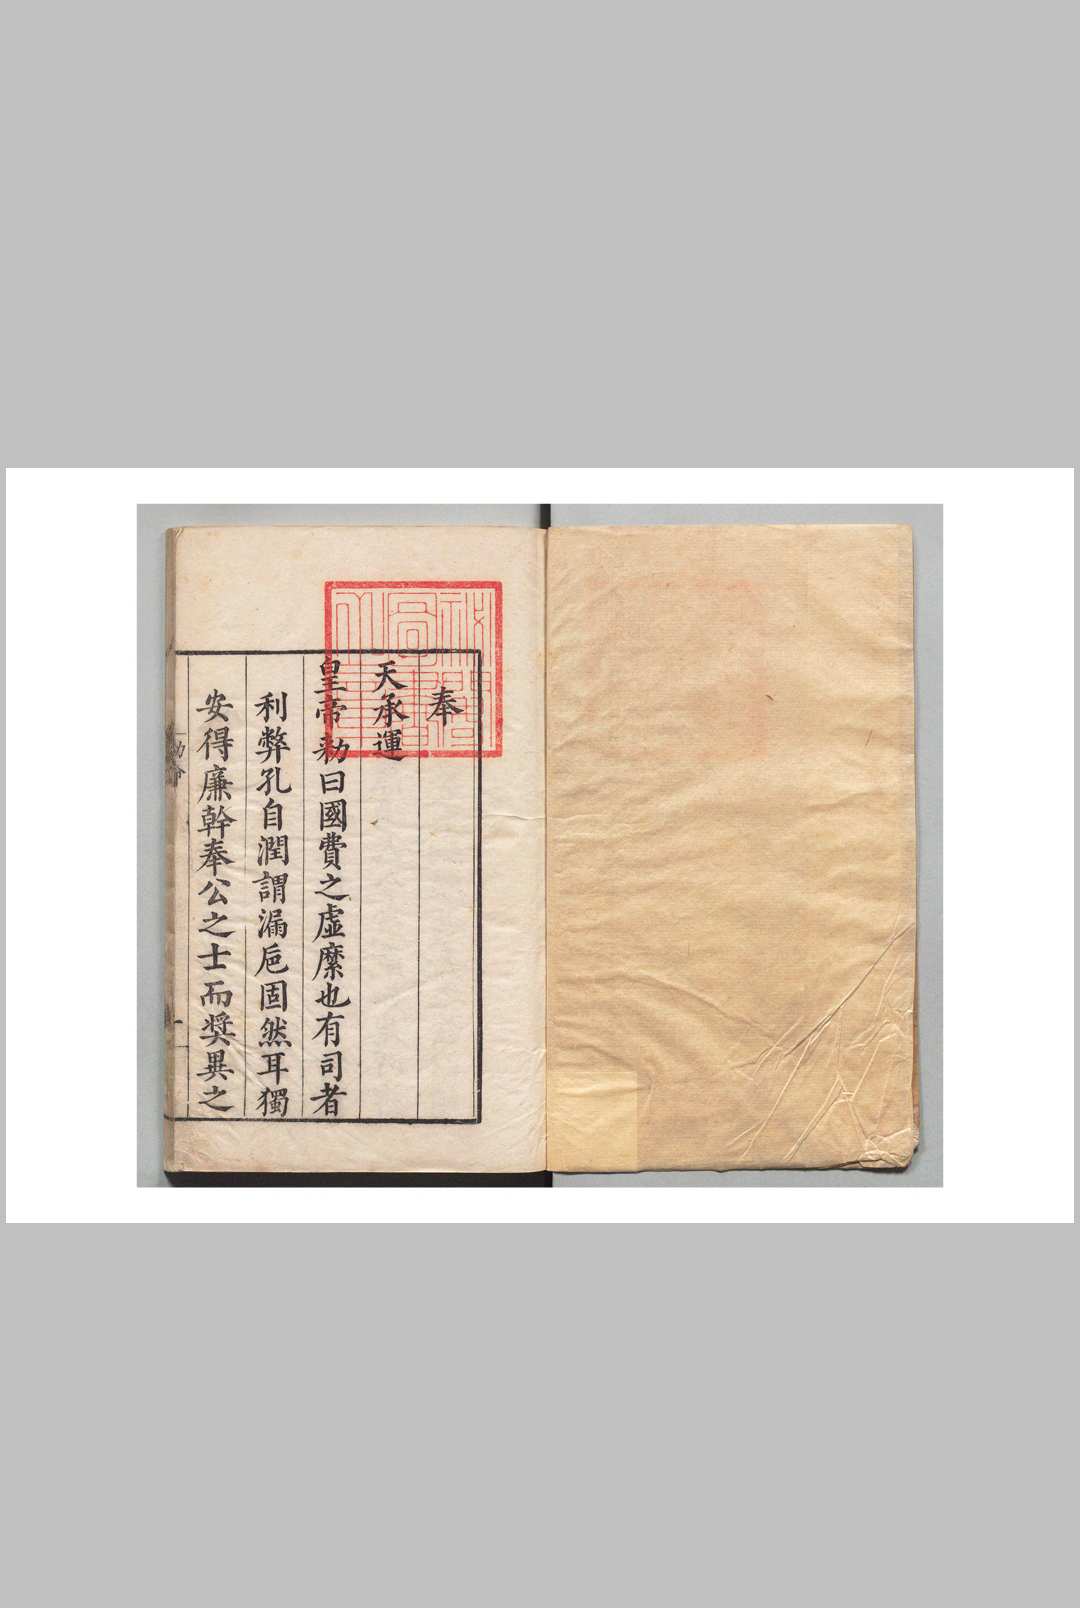 奉
天承運
皇帝勑曰國費之虛縻也有司者
利弊孔自潤謂漏巵固然耳獨
安得廉幹奉公之士而奬異之